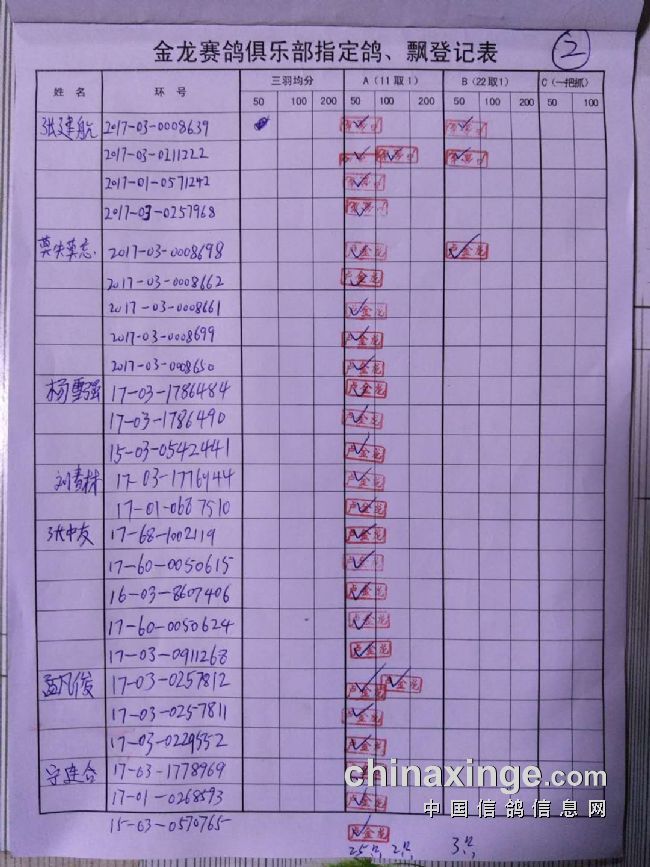 金龙赛鸽俱乐部指定鸽、飘登记表
2
姓名 环号 三羽均分 A(11取1) B(22取1) C(一把抓)
50 100 200 50 100 200 50 100 200 50 100
张建航 2017-03-0008639
2017-03-0211222
2017-01-0571242
2017-03-0257968
莫失莫忘 2017-03-0008698 卢金龙 卢金龙
2017-03-0008662 卢金龙
2017-03-0008661 卢金龙
2017-03-0008699 卢金龙
2017-03-0008650 卢金龙
杨雪强 17-03-1786484 卢金龙
17-03-1786490 卢金龙
15-03-0542441 卢金龙
刘青林 17-03-1776944 卢金龙
17-01-0687510 卢金龙
张中友 17-68-1002119 卢金龙
17-60-0050615 卢金龙
16-03-8607406 卢金龙
17-60-0050624 卢金龙
17-03-0911268 卢金龙
孟凡俊 17-03-0257812 卢金龙 卢金龙
17-03-0257811 卢金龙
17-03-0229552 卢金龙
宁连合 17-03-1778969 卢金龙
17-01-0268593 卢金龙
15-03-0570765 卢金龙
25只 2只 3只
chinaxinge.com
中国信鸽信息网